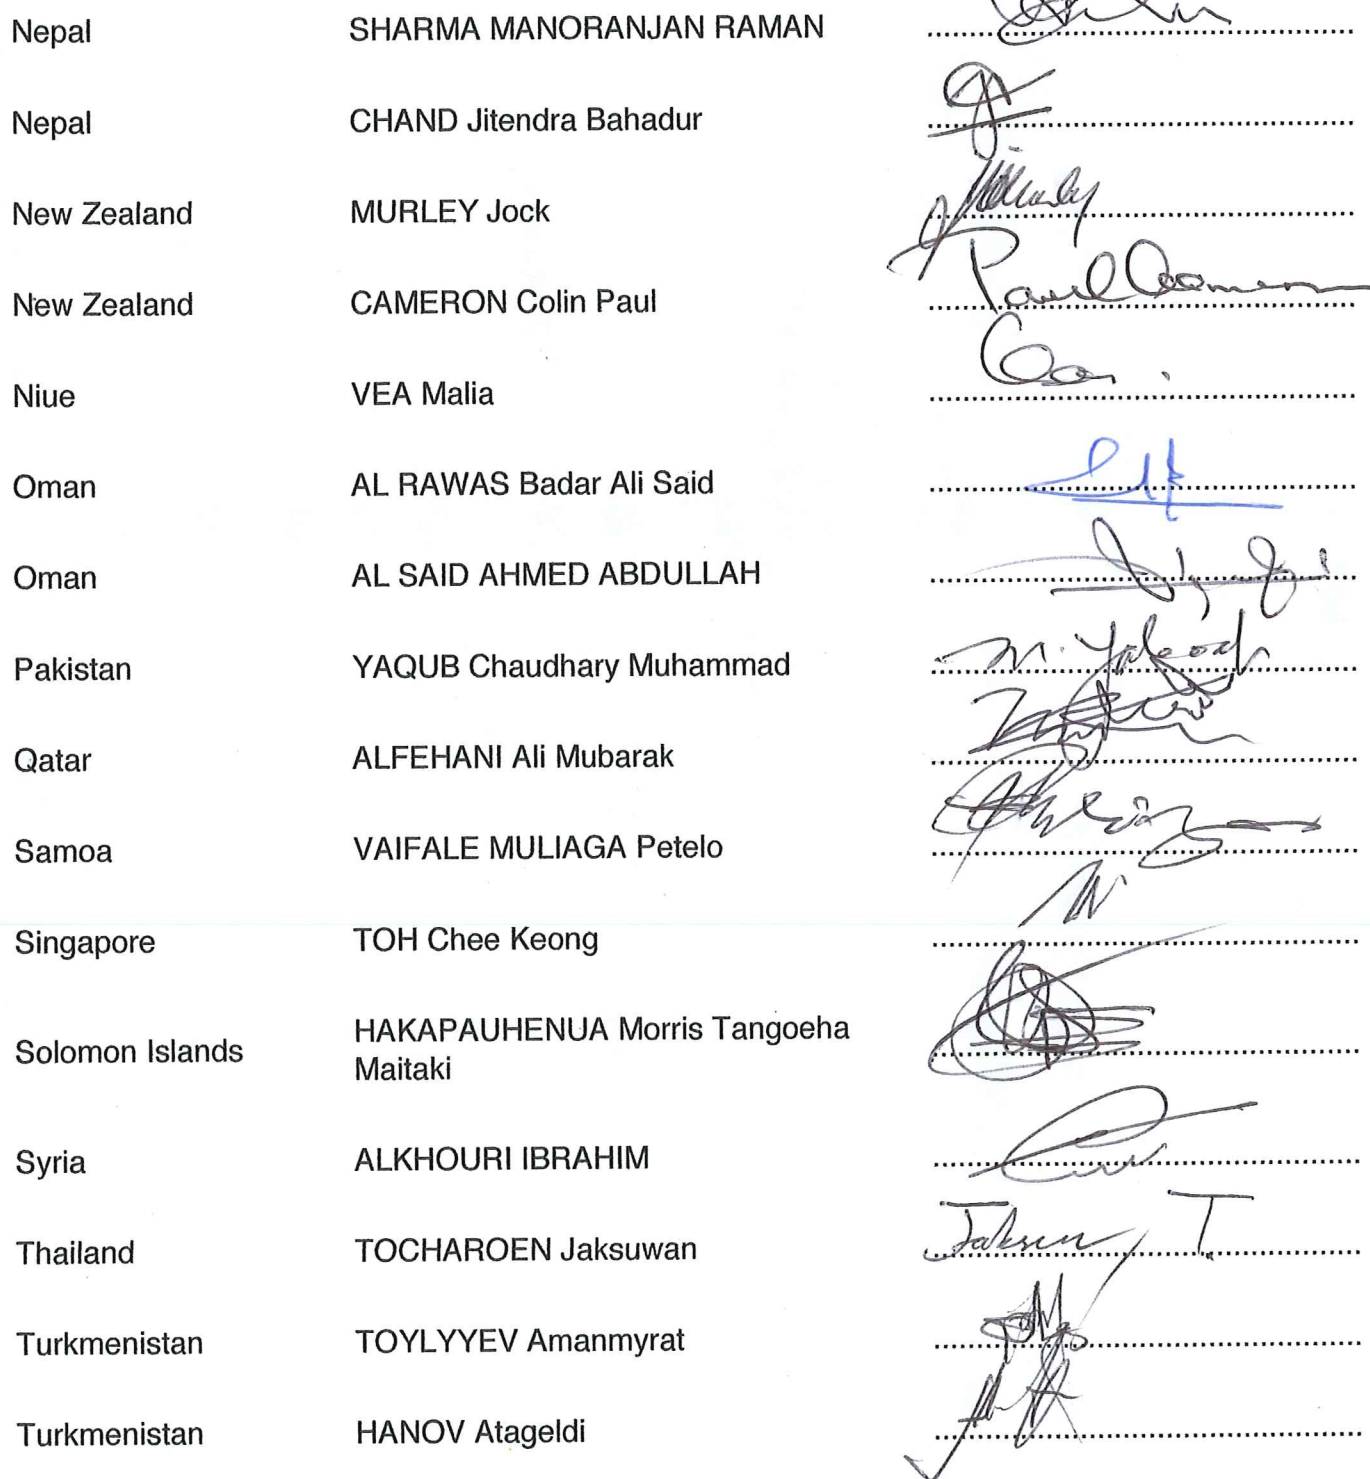 Nepal SHARMA MANORANJAN RAMAN
Nepal CHAND Jitendra Bahadur
New Zealand MURLEY Jock
New Zealand CAMERON Colin Paul Paul Cameron
Niue VEA Malia
Oman AL RAWAS Badar Ali Said
Oman AL SAID AHMED ABDULLAH
Pakistan YAQUB Chaudhary Muhammad M. Yaqoob
Qatar ALFEHANI Ali Mubarak
Samoa VAIFALE MULIAGA Petelo
Singapore TOH Chee Keong
Solomon Islands HAKAPAUHENUA Morris Tangoeha
Maitaki
Syria ALKHOURI IBRAHIM
Thailand TOCHAROEN Jaksuwan
Turkmenistan TOYLYYEV Amanmyrat
Turkmenistan HANOV Atageldi